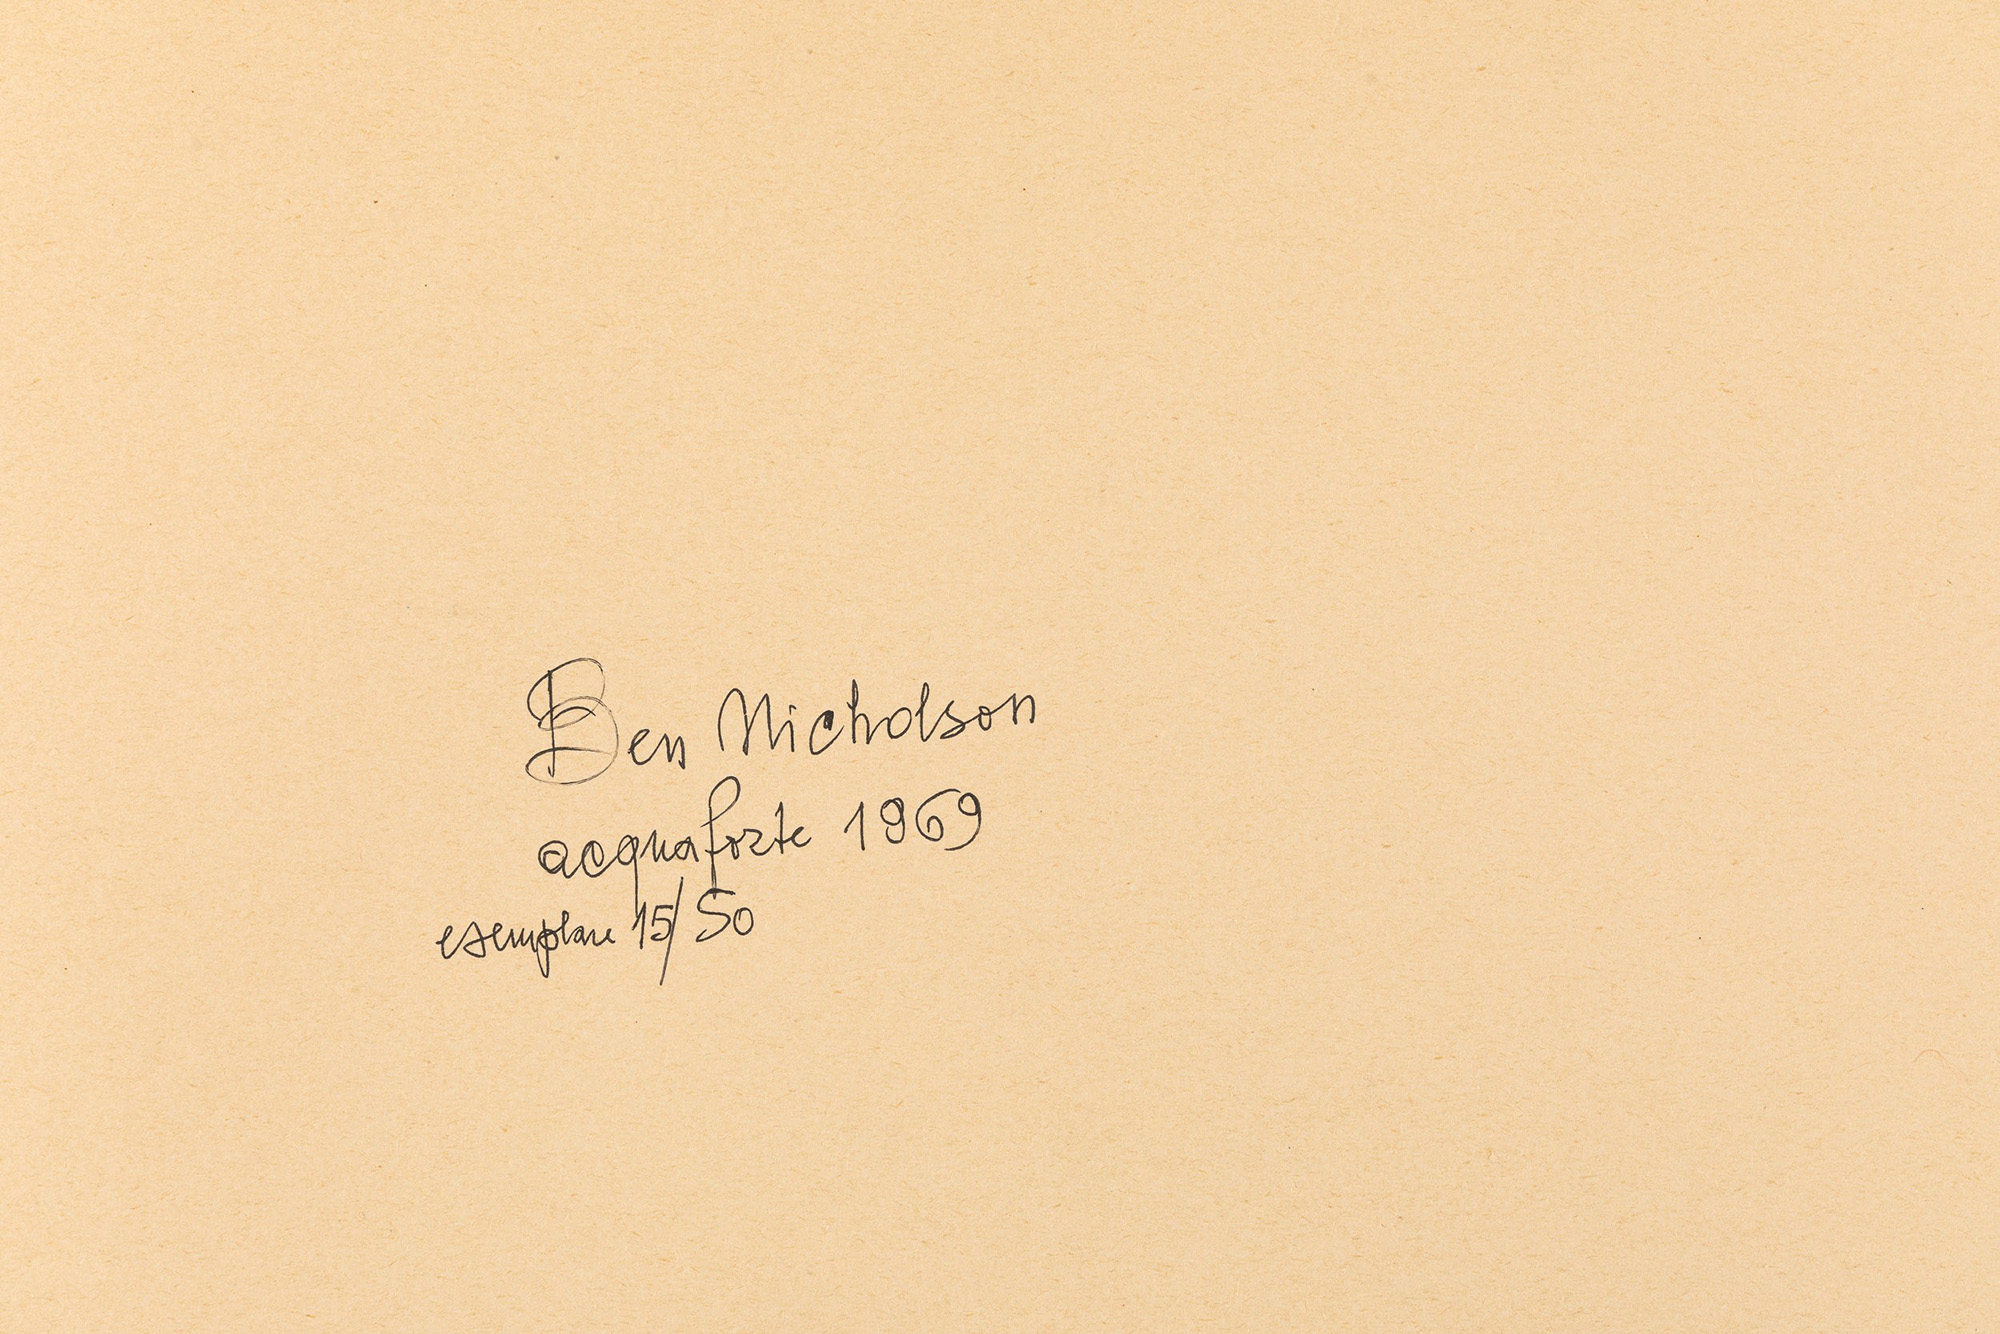 Ben Nicholson
acquaforte 1969
esemplare 15/50